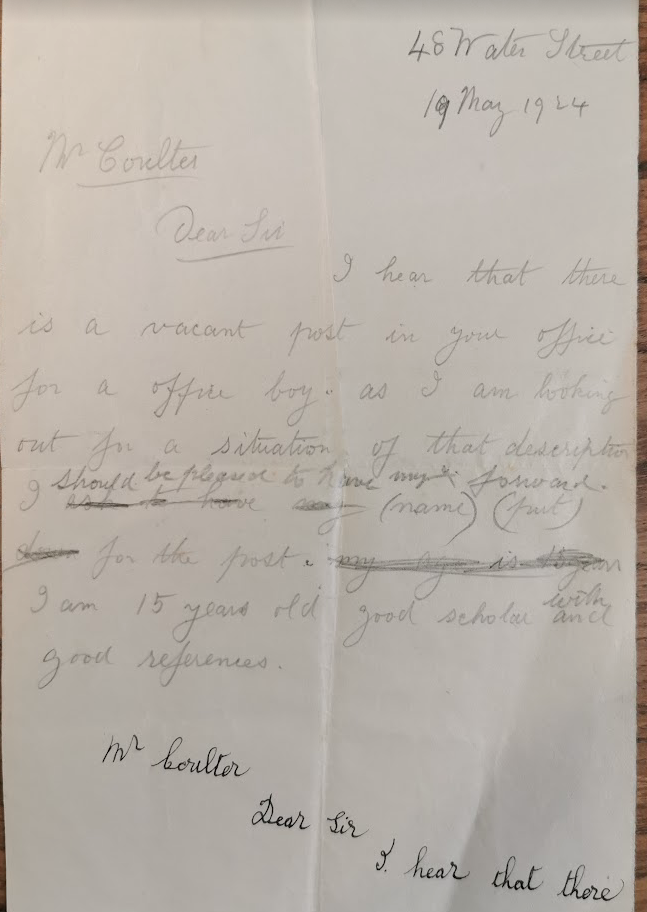 48 Water Street
19 May 1924
Mr Coulter
Dear Sir
I hear that there
is a vacant post in your office
for a office boy. as I am looking
out for a situation of that description
should be pleased to have my x forward.
I ask to have my (name) (put)
down for the post. my age is 15 years
with
I am 15 years old good scholar and
good references.
Mr Coulter
Dear Sir
I hear that there